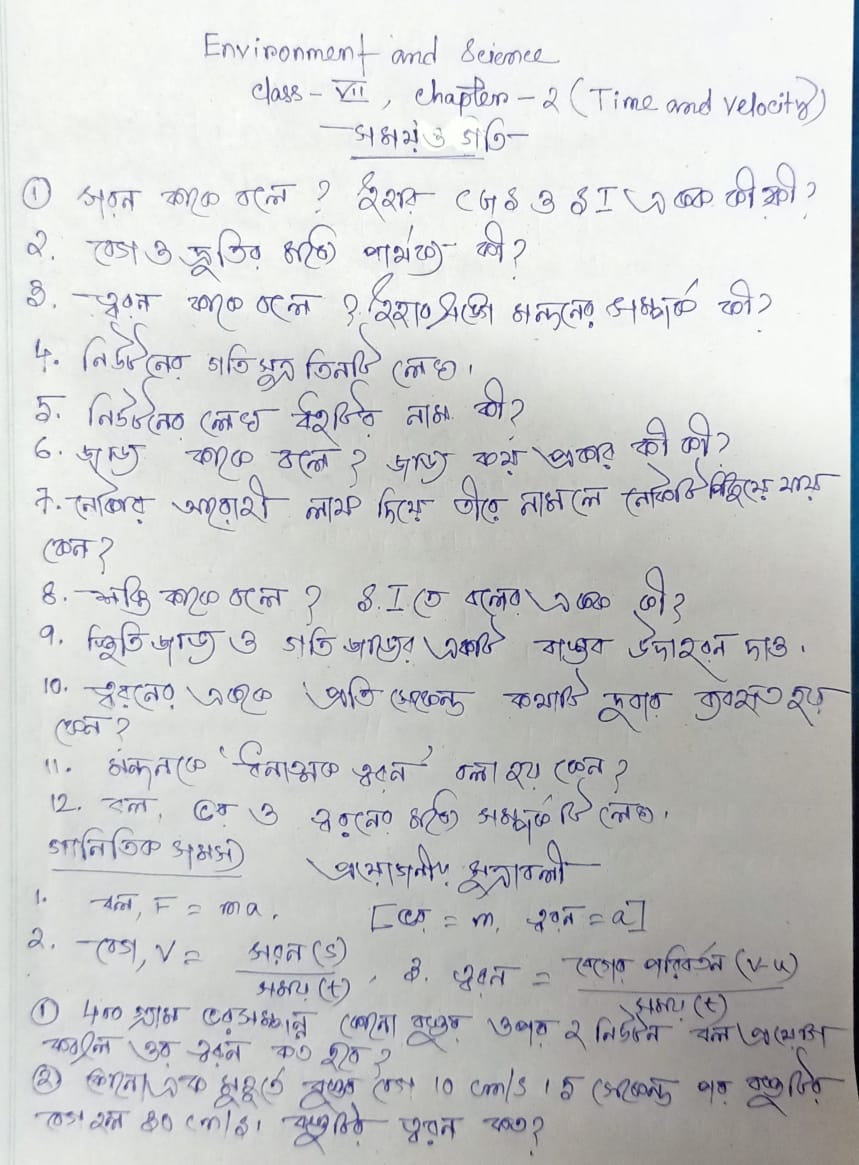 Environment and Science
Class - VII, Chapter - 2 (Time and velocity)
সময় ও গতি
① সরন কাকে বলে ? ইহার CGS ও SI একক কী কী?
2. বেগ ও দ্রুতির মধ্যে পার্থক্য কী?
3. ত্বরন কাকে বলে ? ইহার সঙ্গে মন্দনের সম্পর্ক কী?
4. নিউটনের গতিসূত্র তিনটি লেখ।
5. নিউটনের লেখা বইটির নাম কী?
6. জাড্য কাকে বলে ? জাড্য কয় প্রকার কী কী?
7. নৌকার আরোহী লাফ দিয়ে তীরে নামলে নৌকাটি পিছিয়ে যায়
কেন?
8. শক্তি কাকে বলে ? S.I তে বলের একক কী?
9. স্থিতি জাড্য ও গতি জাড্যের একটি বাস্তব উদাহরন দাও।
10. ত্বরনের এককে প্রতি সেকেন্ড কথাটি দুবার ব্যবহৃত হয়
কেন?
11. মন্দনকে 'ঋনাত্মক ত্বরন' বলা হয় কেন?
12. বল, ভর ও ত্বরনের মধ্যে সম্পর্কটি লেখ।
গানিতিক সমস্যা প্রয়োজনীয় সূত্রাবলী
1. বল, F = ma. [ভর = m, ত্বরন = a]
2. বেগ, V = সরন (s) / সময় (t) , 3. ত্বরন = বেগের পরিবর্তন (v-u) / সময় (t)
① 400 গ্রাম ভরসম্পন্ন কোনো বস্তুর ওপর 2 নিউটন বল প্রয়োগ
করলে ওর ত্বরন কত হবে?
② কোনো এক মুহূর্তে বস্তুর বেগ 10 cm/s। 5 সেকেন্ড পর বস্তুটির
বেগ হল 80 cm/s। বস্তুটির ত্বরন কত?